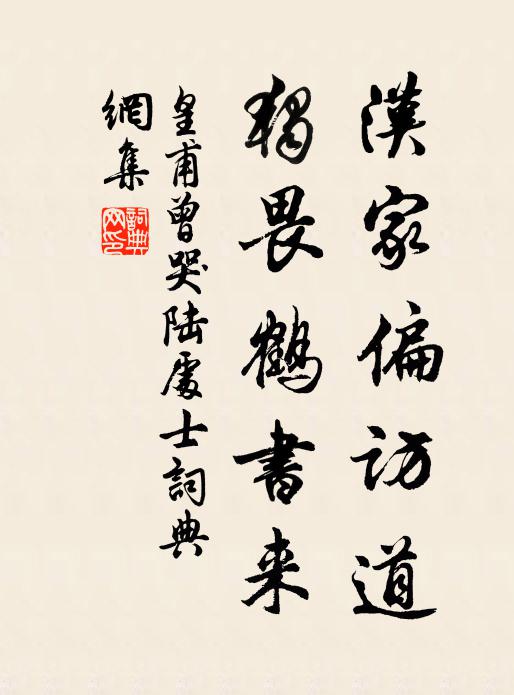 漢家偏訪道
獨畏鶴書来
皇甫曾哭陸處士詞典
網集
詞典
网印